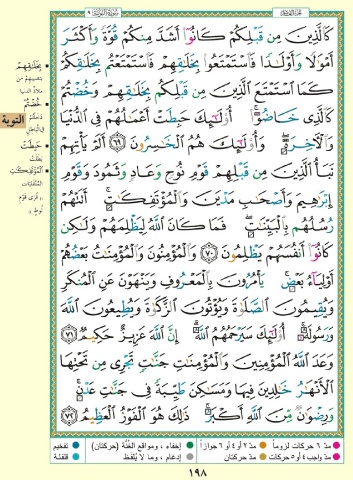 الجزء العاشر
سورة التوبة ٩
كَالَّذِينَ مِن قَبْلِكُمْ كَانُوٓا۟ أَشَدَّ مِنكُمْ قُوَّةً وَأَكْثَرَ
أَمْوَٰلًا وَأَوْلَٰدًا فَٱسْتَمْتَعُوا۟ بِخَلَٰقِهِمْ فَٱسْتَمْتَعْتُم بِخَلَٰقِكُمْ
كَمَا ٱسْتَمْتَعَ ٱلَّذِينَ مِن قَبْلِكُم بِخَلَٰقِهِمْ وَخُضْتُمْ
كَٱلَّذِى خَاضُوٓا۟ ۚ أُو۟لَٰٓئِكَ حَبِطَتْ أَعْمَٰلُهُمْ فِى ٱلدُّنْيَا
وَٱلْءَاخِرَةِ ۖ وَأُو۟لَٰٓئِكَ هُمُ ٱلْخَٰسِرُونَ ٦٩ أَلَمْ يَأْتِهِمْ
نَبَأُ ٱلَّذِينَ مِن قَبْلِهِمْ قَوْمِ نُوحٍ وَعَادٍ وَثَمُودَ وَقَوْمِ
إِبْرَٰهِيمَ وَأَصْحَٰبِ مَدْيَنَ وَٱلْمُؤْتَفِكَٰتِ ۚ أَتَتْهُمْ
رُسُلُهُم بِٱلْبَيِّنَٰتِ ۖ فَمَا كَانَ ٱللَّهُ لِيَظْلِمَهُمْ وَلَٰكِن
كَانُوٓا۟ أَنفُسَهُمْ يَظْلِمُونَ ٧٠ وَٱلْمُؤْمِنُونَ وَٱلْمُؤْمِنَٰتُ بَعْضُهُمْ
أَوْلِيَآءُ بَعْضٍ ۚ يَأْمُرُونَ بِٱلْمَعْرُوفِ وَيَنْهَوْنَ عَنِ ٱلْمُنكَرِ
وَيُقِيمُونَ ٱلصَّلَوٰةَ وَيُؤْتُونَ ٱلزَّكَوٰةَ وَيُطِيعُونَ ٱللَّهَ
وَرَسُولَهُۥٓ ۚ أُو۟لَٰٓئِكَ سَيَرْحَمُهُمُ ٱللَّهُ ۗ إِنَّ ٱللَّهَ عَزِيزٌ حَكِيمٌ ٧١
وَعَدَ ٱللَّهُ ٱلْمُؤْمِنِينَ وَٱلْمُؤْمِنَٰتِ جَنَّٰتٍ تَجْرِى مِن تَحْتِهَا
ٱلْأَنْهَٰرُ خَٰلِدِينَ فِيهَا وَمَسَٰكِنَ طَيِّبَةً فِى جَنَّٰتِ عَدْنٍ ۚ
وَرِضْوَٰنٌ مِّنَ ٱللَّهِ أَكْبَرُ ۚ ذَٰلِكَ هُوَ ٱلْفَوْزُ ٱلْعَظِيمُ ٧٢
بِخَلَٰقِهِمْ
بنصيبهم من
ملاذ الدنيا
خُضْتُمْ
دخلتم
في الباطل
التوبة
حَبِطَتْ
بطلت
الْمُؤْتَفِكَٰتِ
المنقلبات
قرى قوم
لوط
مدّ ٦ حركات لزوماً
مدّ ٢ أو ٤ أو ٦ جوازاً
إخفاء، ومواقع الغُنَّة (حركتان)
تفخيم
مدّ واجب ٤ أو ٥ حركات
مدّ حركتان
إدغام، وما لا يُلفَظ
قلقلة
١٩٨